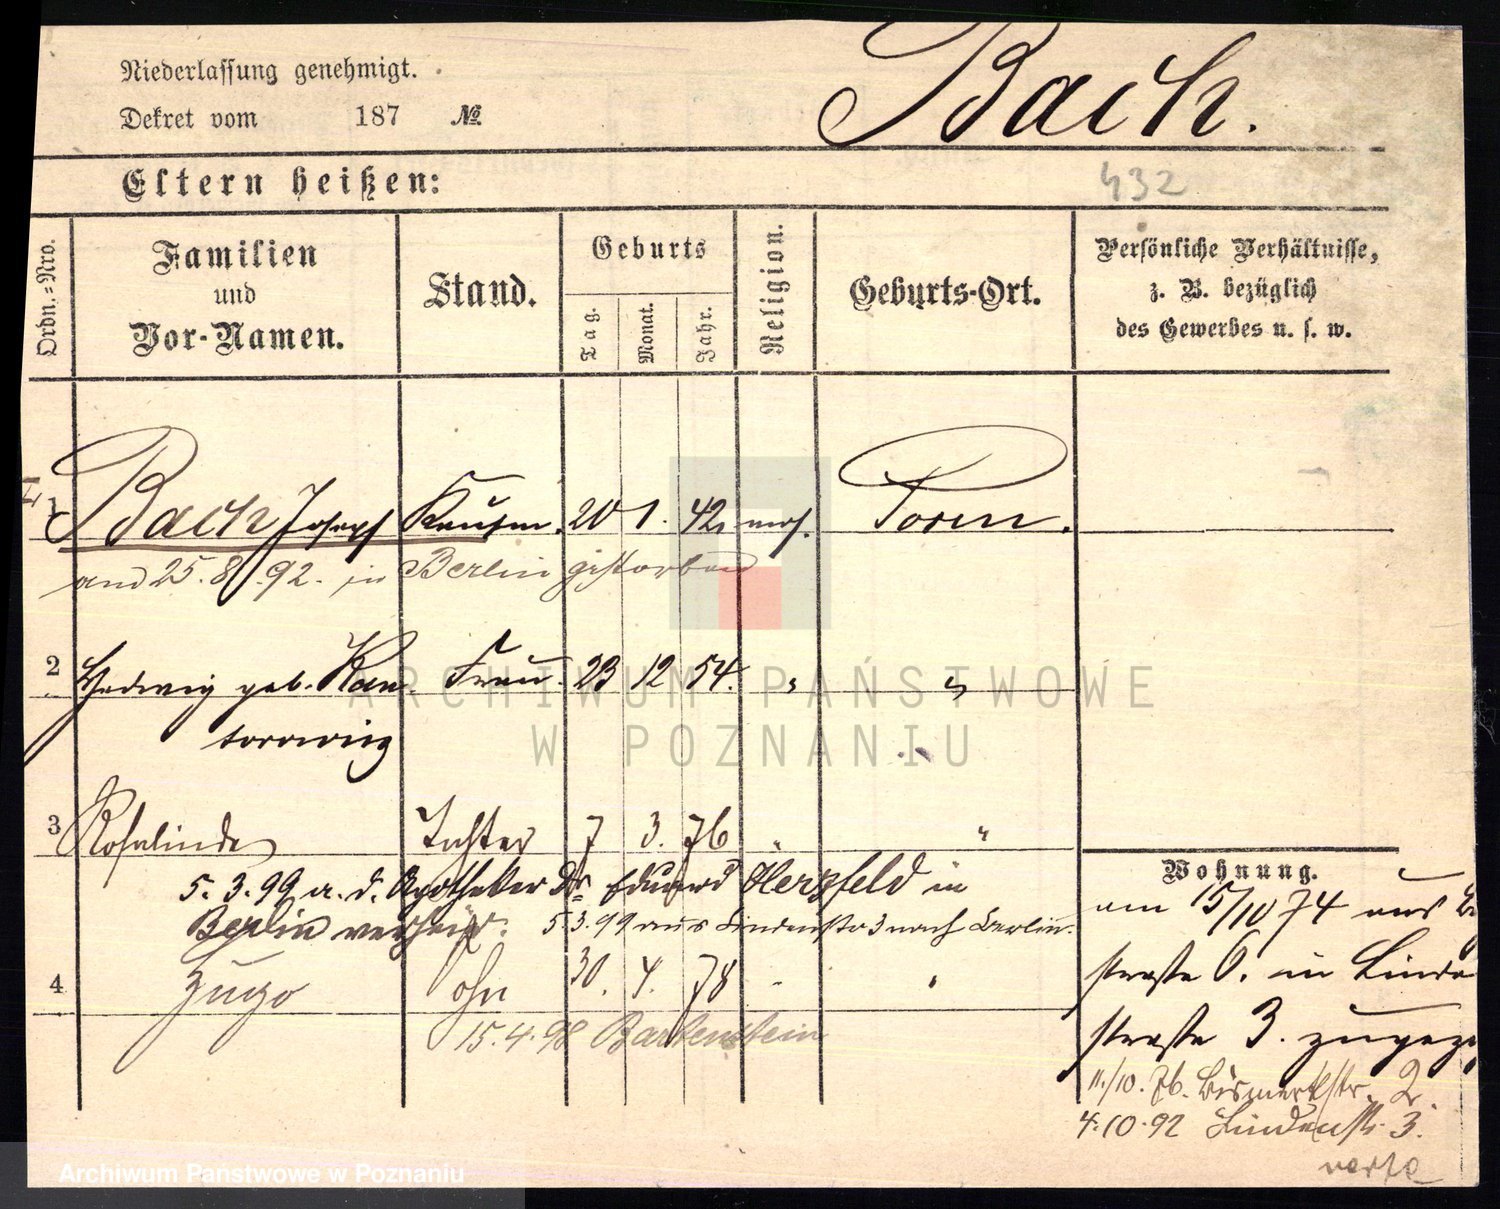 Niederlassung genehmigt.
Dekret vom 187 №
Bach.
Eltern heißen:
432
Ordn.-Nro.
Familien
und
Vor-Namen.
Stand.
Geburts
Tag.
Monat.
Jahr.
Religion.
Geburts-Ort.
Persönliche Verhältnisse,
z. B. bezüglich
des Gewerbes u. s. w.
1 Bach Joseph Kaufm. 20 1. 42 mos. Posen.
am 25. 8. 92. in Berlin gestorben
2 Hedwig geb. Kan- Frau 23 12 54. " "
torowicz
3 Rosalinde Tochter 7 3. 76 " "
5. 3. 99 a. d. Apotheker Dr Eduard Herzfeld in
Berlin verheir. 5 3. 99 aus Lindenstr 3 nach Berlin.
4 Hugo Sohn 30. 4. 78 " "
15. 4. 98 Bartenstein
Wohnung.
am 15/10 74 aus
straße 6. in Linden
straße 3. zugez
11./10. 76. Bismarkstr. 2.
4. 10. 92 Lindenstr. 3.
verte
ARCHIWUM PAŃSTWOWE
W POZNANIU
Archiwum Państwowe w Poznaniu